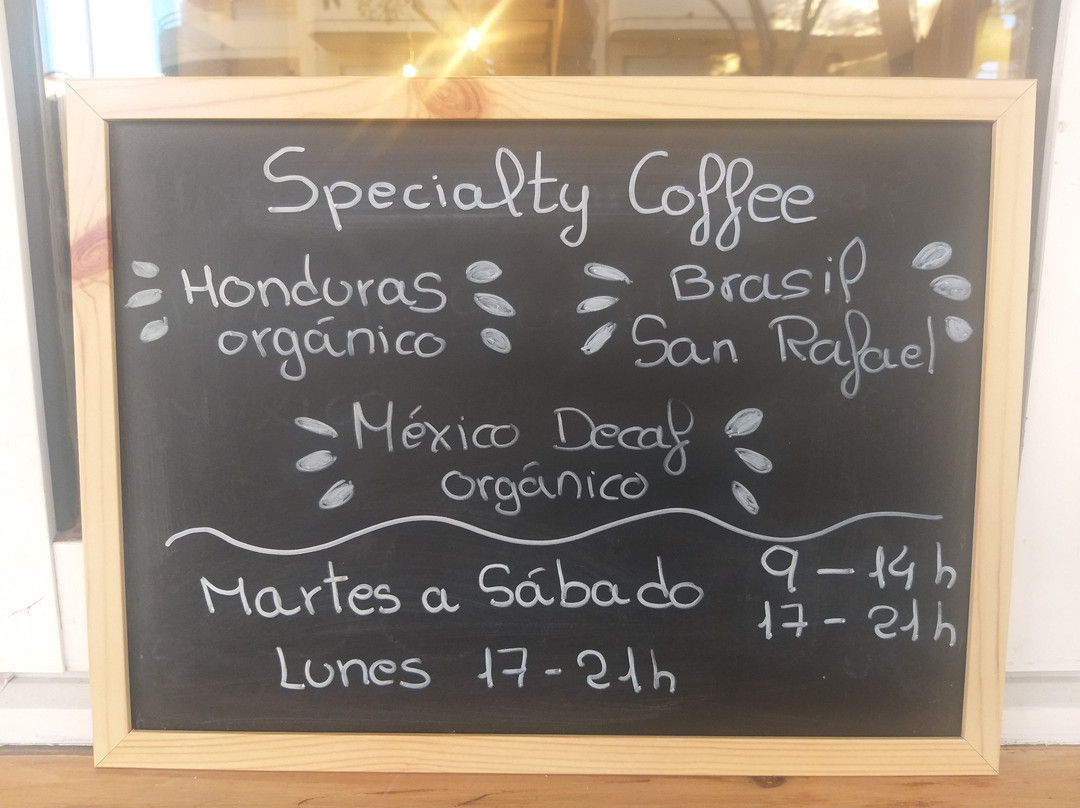 Specialty Coffee
Honduras
orgánico
Brasil
San Rafael
México Decaf
orgánico
Martes a Sábado 9 - 14 h
17 - 21 h
Lunes 17 - 21 h